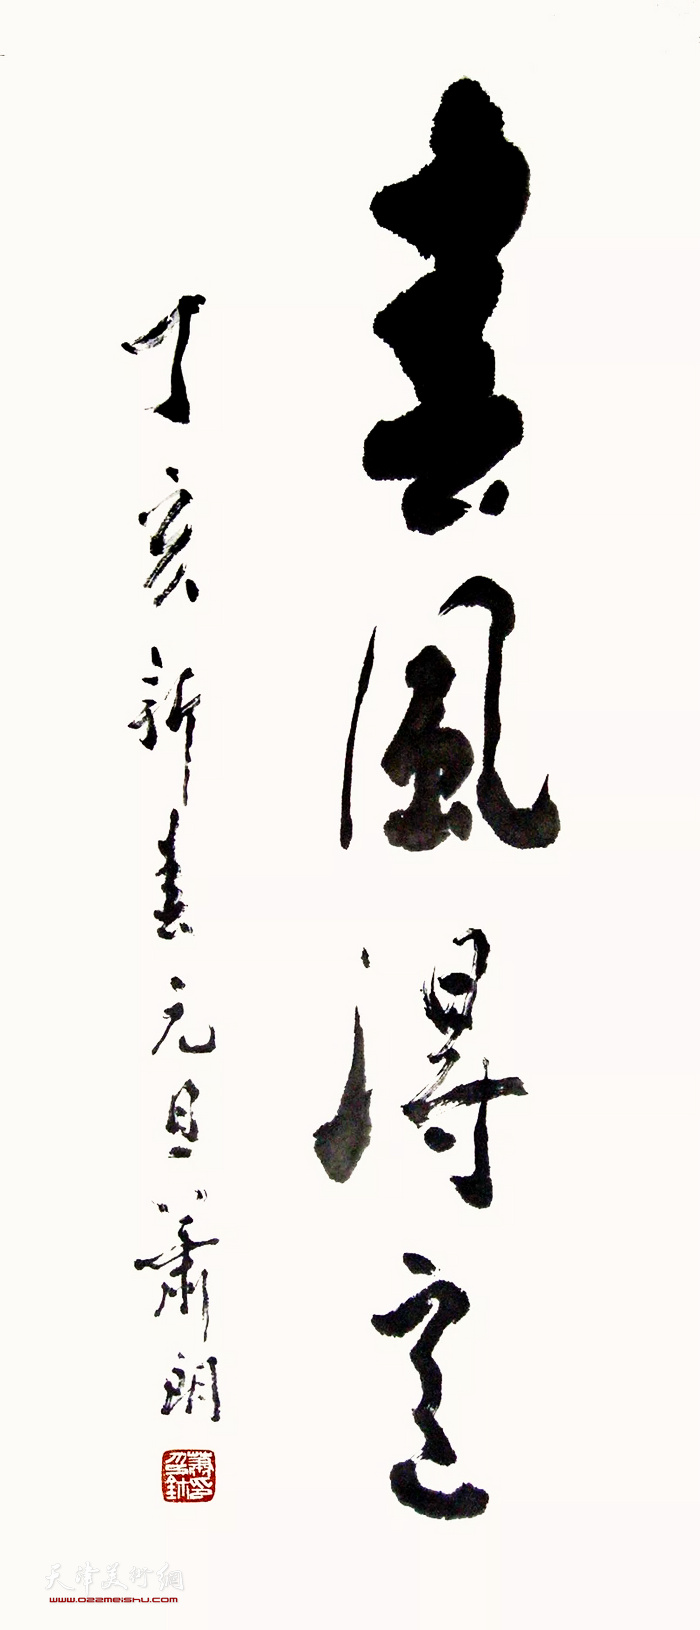 春風得意
丁亥新春元旦蕭朗
天津美術網
www.022meishu.com